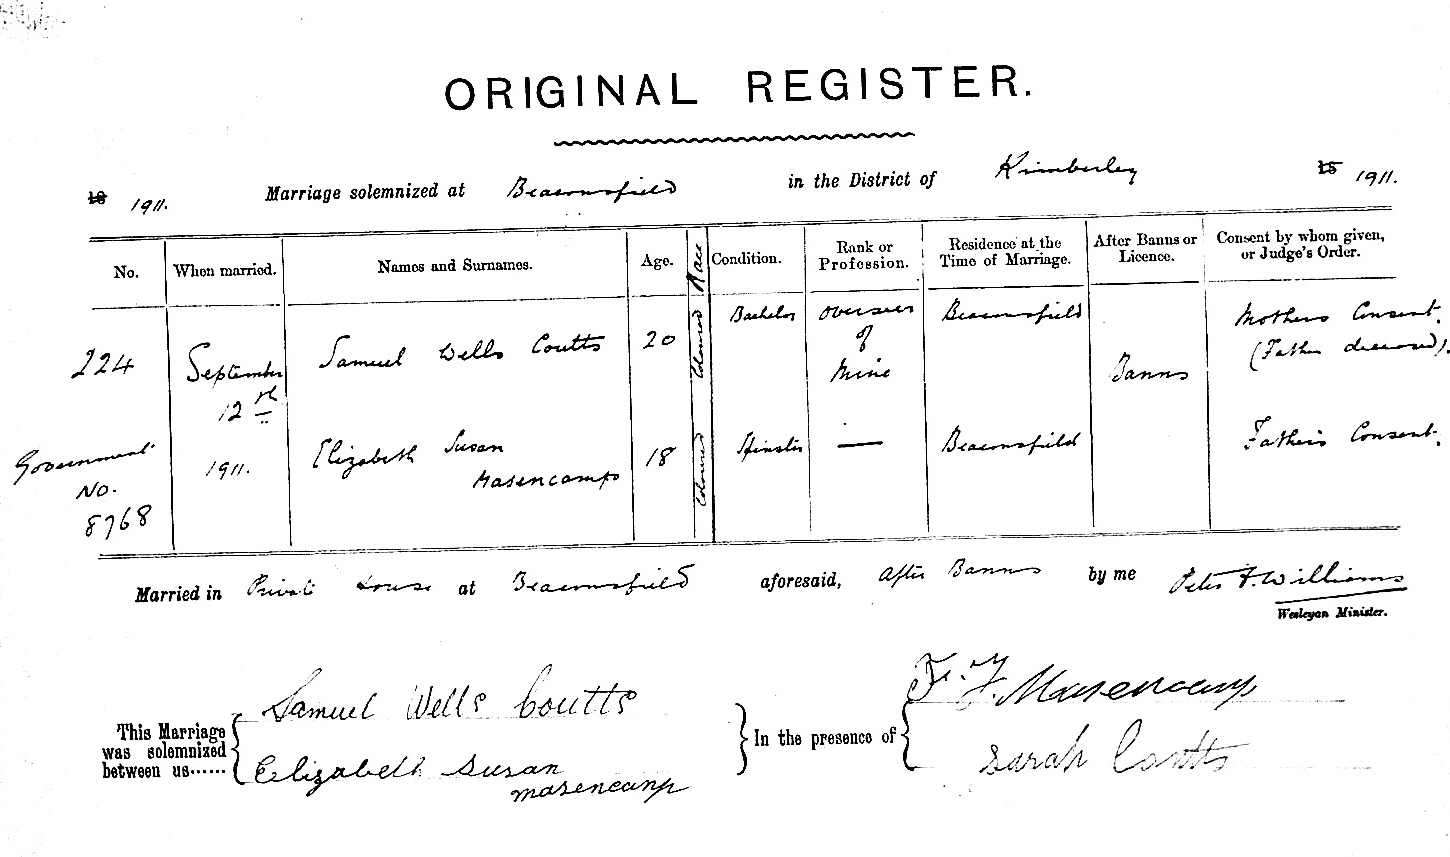 ORIGINAL REGISTER.
18 1911. Marriage solemnized at Beaconsfield in the District of Kimberley 18 1911.
No. When married. Names and Surnames. Age. Race Condition. Rank or Profession. Residence at the Time of Marriage. After Banns or Licence. Consent by whom given, or Judge's Order.
224 September 12th 1911. Samuel Wells Coutts 20 Coloured Bachelor Overseer of Mine Beaconsfield Banns Mothers Consent. (Father deceased).
Government No. 8768 Elizabeth Susan Masencamp 18 Coloured Spinster — Beaconsfield Father's Consent.
Married in Private House at Beaconsfield aforesaid, After Banns by me Peter F. Williams
Wesleyan Minister.
This Marriage was solemnized between us......
Samuel Wells Coutts
Elizabeth Susan Masencamp
In the presence of
F. J. Masencamp
Sarah Coutts